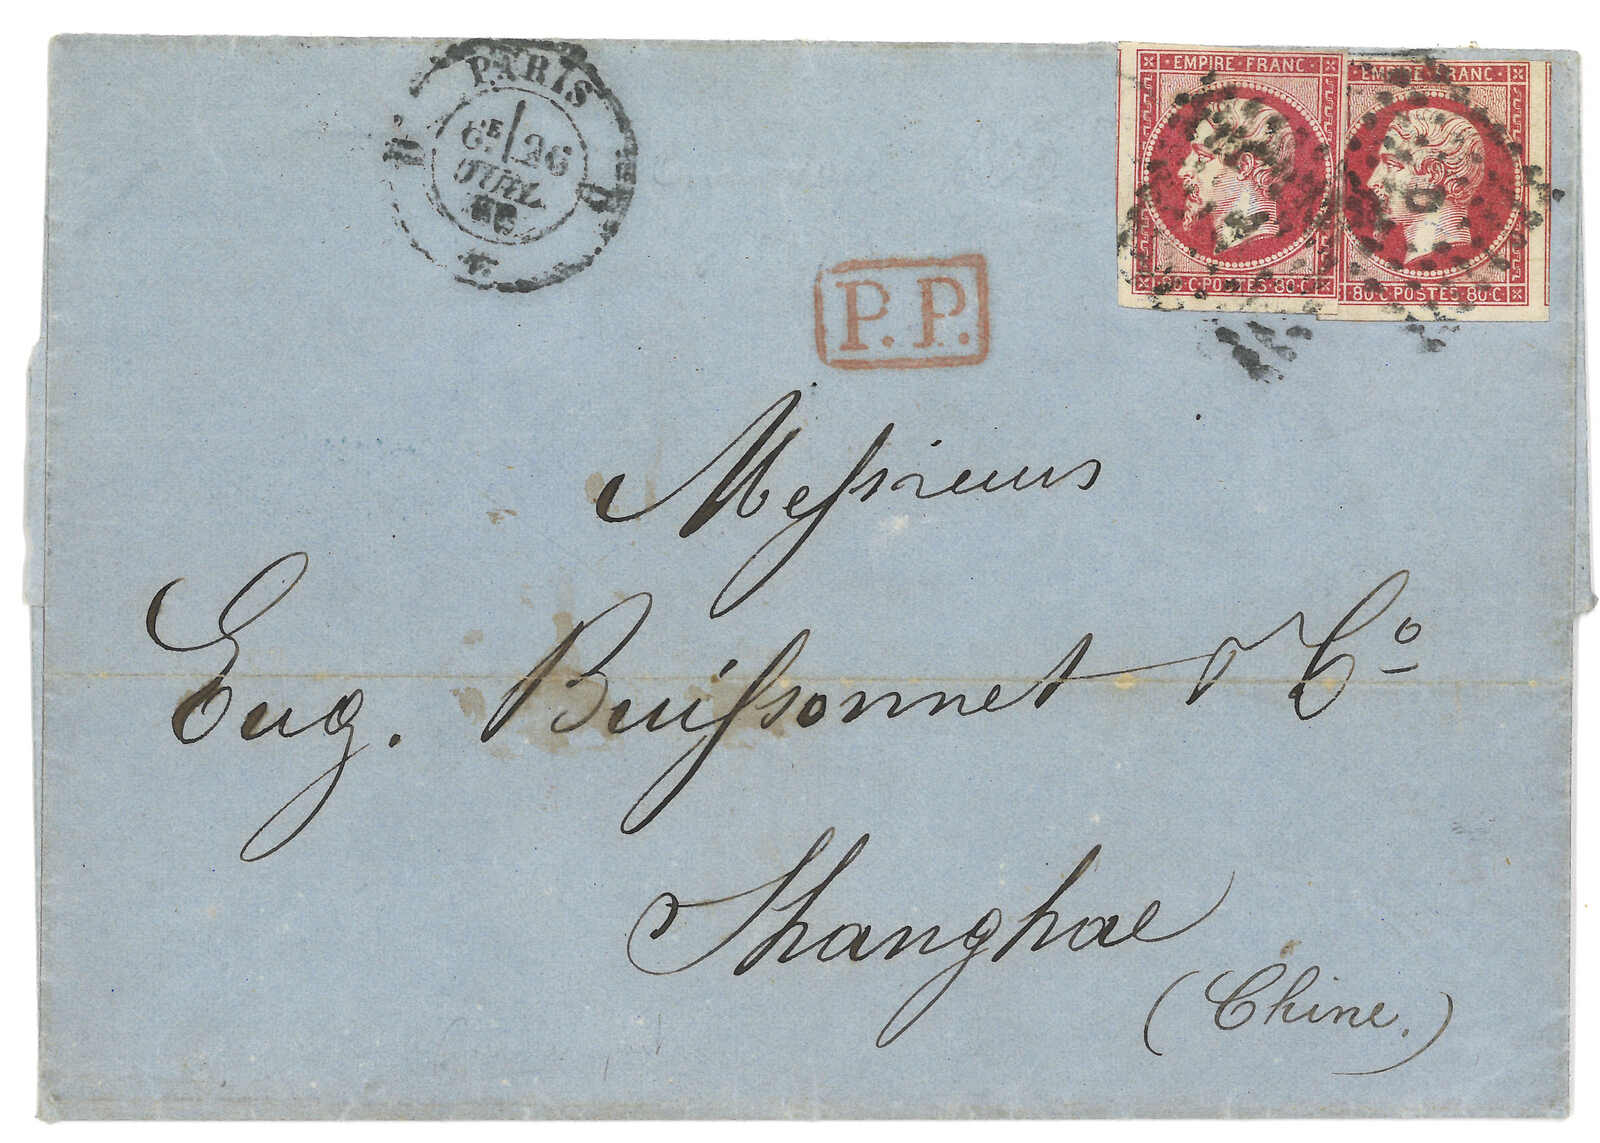 PARIS
6E 26
JUIL.
60
D D
EMPIRE FRANC
80·C·POSTES·80·C
EMPIRE FRANC
80·C·POSTES·80·C
D
P.P.
Messieurs
Eug. Buissonnet & Co
Shanghae
(Chine.)